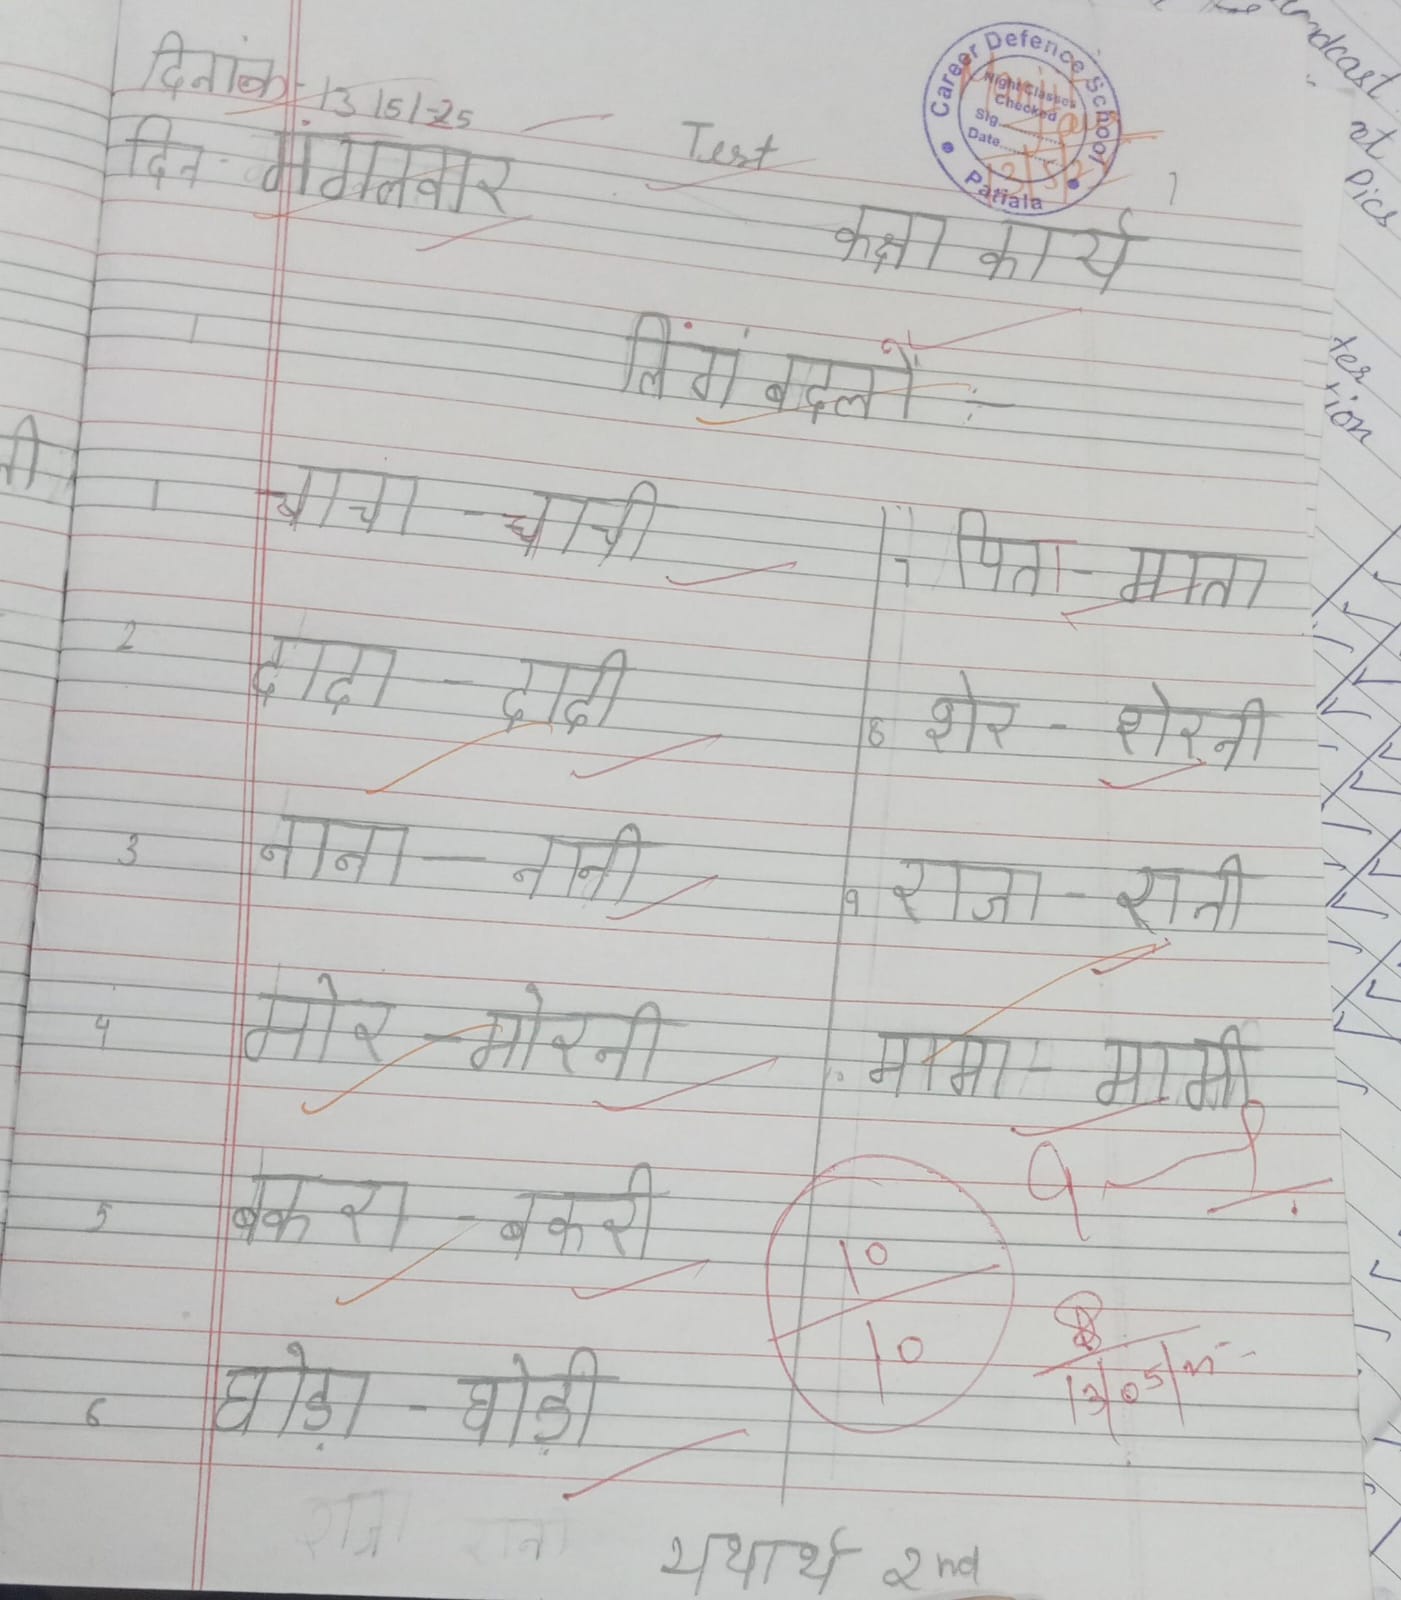 दिनांक - 13/5/25
दिन - मंगलवार
Test
Career Defence School
Night Classes
Checked
Sig.
Date
Patiala
13/5/25
कक्षा कार्य
लिंग बदलों :-
1 चाचा - चाची
2 दादा - दादी
3 नाना - नानी
4 मोर - मोरनी
5 बकरा - बकरी
6 घोड़ा - घोड़ी
7 पिता - माता
8 शेर - शेरनी
9 राजा - रानी
मामा - मामी
10
10
13/05/25
यथार्थ 2nd
नी
at
pics